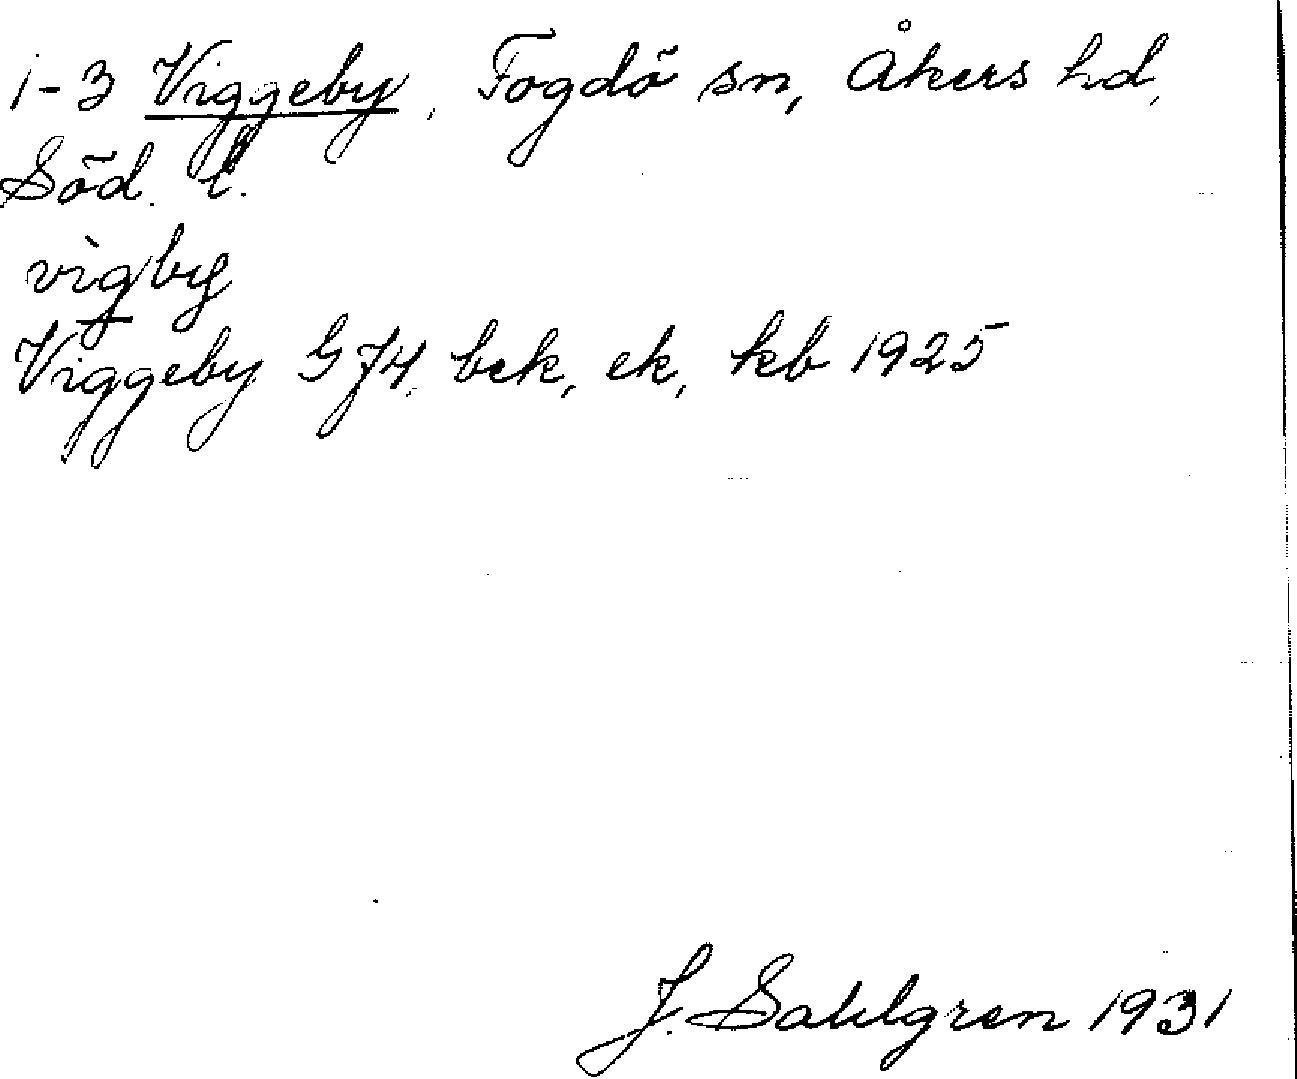 1-3 Viggeby, Fogdö sn, Åkers hd,
Söd. l.
vìgby
Viggeby G J4, bek, ek, kb 1925
J. Sahlgren 1931